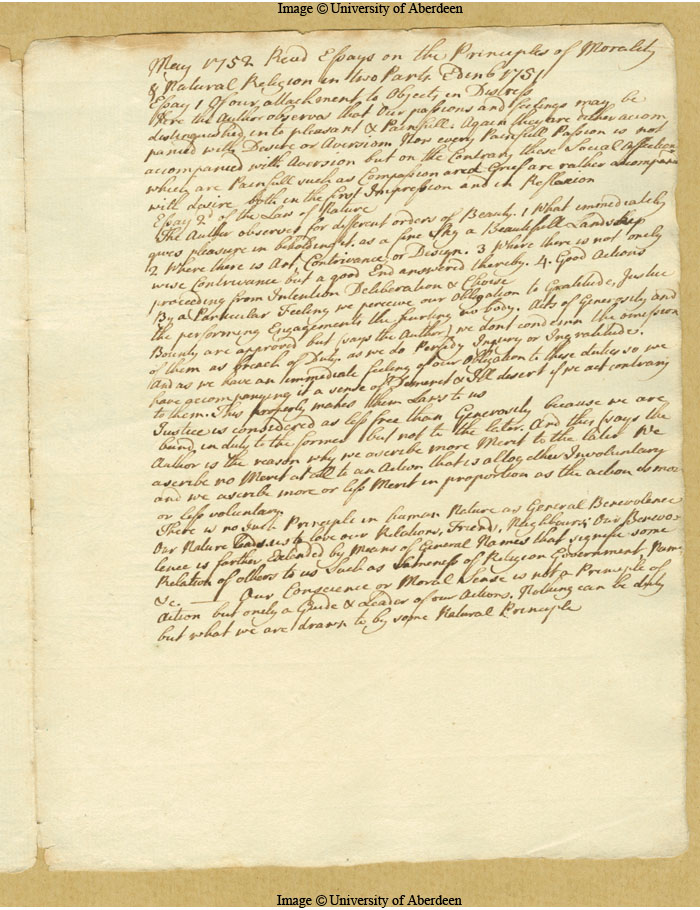 Image © University of Aberdeen
May 1752 Read Essays on the Principles of Morality
& Natural Religion in two Parts Edinb 1751
Essay 1 Of our attachment to Objects in Distress
Here the Author observes that Our passions and feelings may be
distinguished into pleasant & Painfull. Again they are either accom
panied with Desire or Aversion Now every Painfull Passion is not
accompanied with Aversion but on the Contrary those Social Affections
which are Painfull such as Compassion and Grief are rather accompanied
with desire both in the first Impression and in Reflexion
Essay 2d of the Law of Nature
The Author observes four different orders of Beauty. 1 What immediately
gives pleasure in beholding it. as a fine Sky a Beautifull Landskip
2 Where there is Art, Contrivance or Design. 3 Where there is not only
wise Contrivance but a good End answered thereby. 4. Good Actions
proceeding from Intention Deliberation & Choise
By a Particular Feeling we perceive our Obligation to Gratitude, Justice
the performing Engagements the hurting no body. Acts of Generosity and
Bounty are approved but (says the Author) we dont condemn the omission
of them as breach of Duty as we do Perfidy Injury or Ingratitude.
And as we have an immediate feeling of our Obligation to these duties so we
have accompanying it a sense of Demerit & Ill desert if we act contrary
to them. This properly makes them Laws to us
Justice is considered as less free than Generosity because we are
bund in duty to the former but not to the later. And this (says the
Author is the reason why we ascribe more Merit to the later We
ascribe no Merit at all to an Action that is altogether Involuntary
and we ascribe more or less Merit in proportion as the action is more
or less voluntary.
There is no such Principle in human Nature as General Benevolence
Our Nature leads us to love our Relations, Friends, Neighbours; Our Benevo-
lence is farther Extended by Means of General Names that signifie some
Relation of others to us Such as Sameness of Religion Government, Name
&c. — Our Conscience or Moral Sense is not a Principle of
Action but only a Guide & Leader of our Actions. Nothing can be duty
but what we are drawn to by some Natural Principle
Image © University of Aberdeen